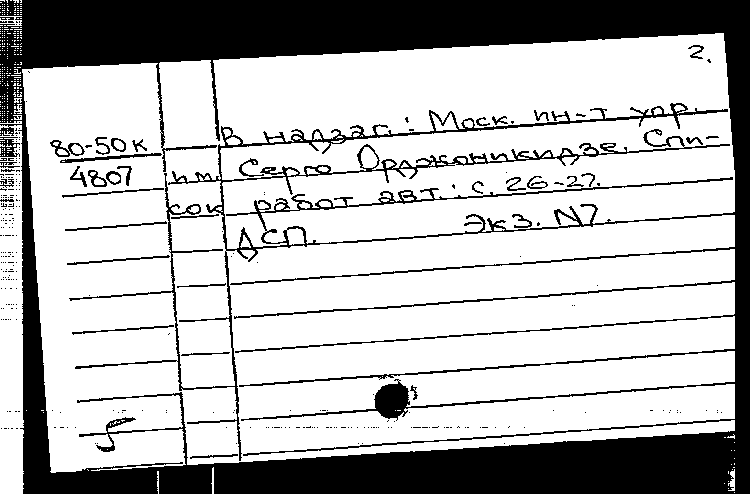 2.
80-50к В надзаг.: Моск. ин-т упр.
4807 им. Серго Орджоникидзе. Спи-
сок работ авт.: с. 26-27.
ДСП. Экз. N7.
5